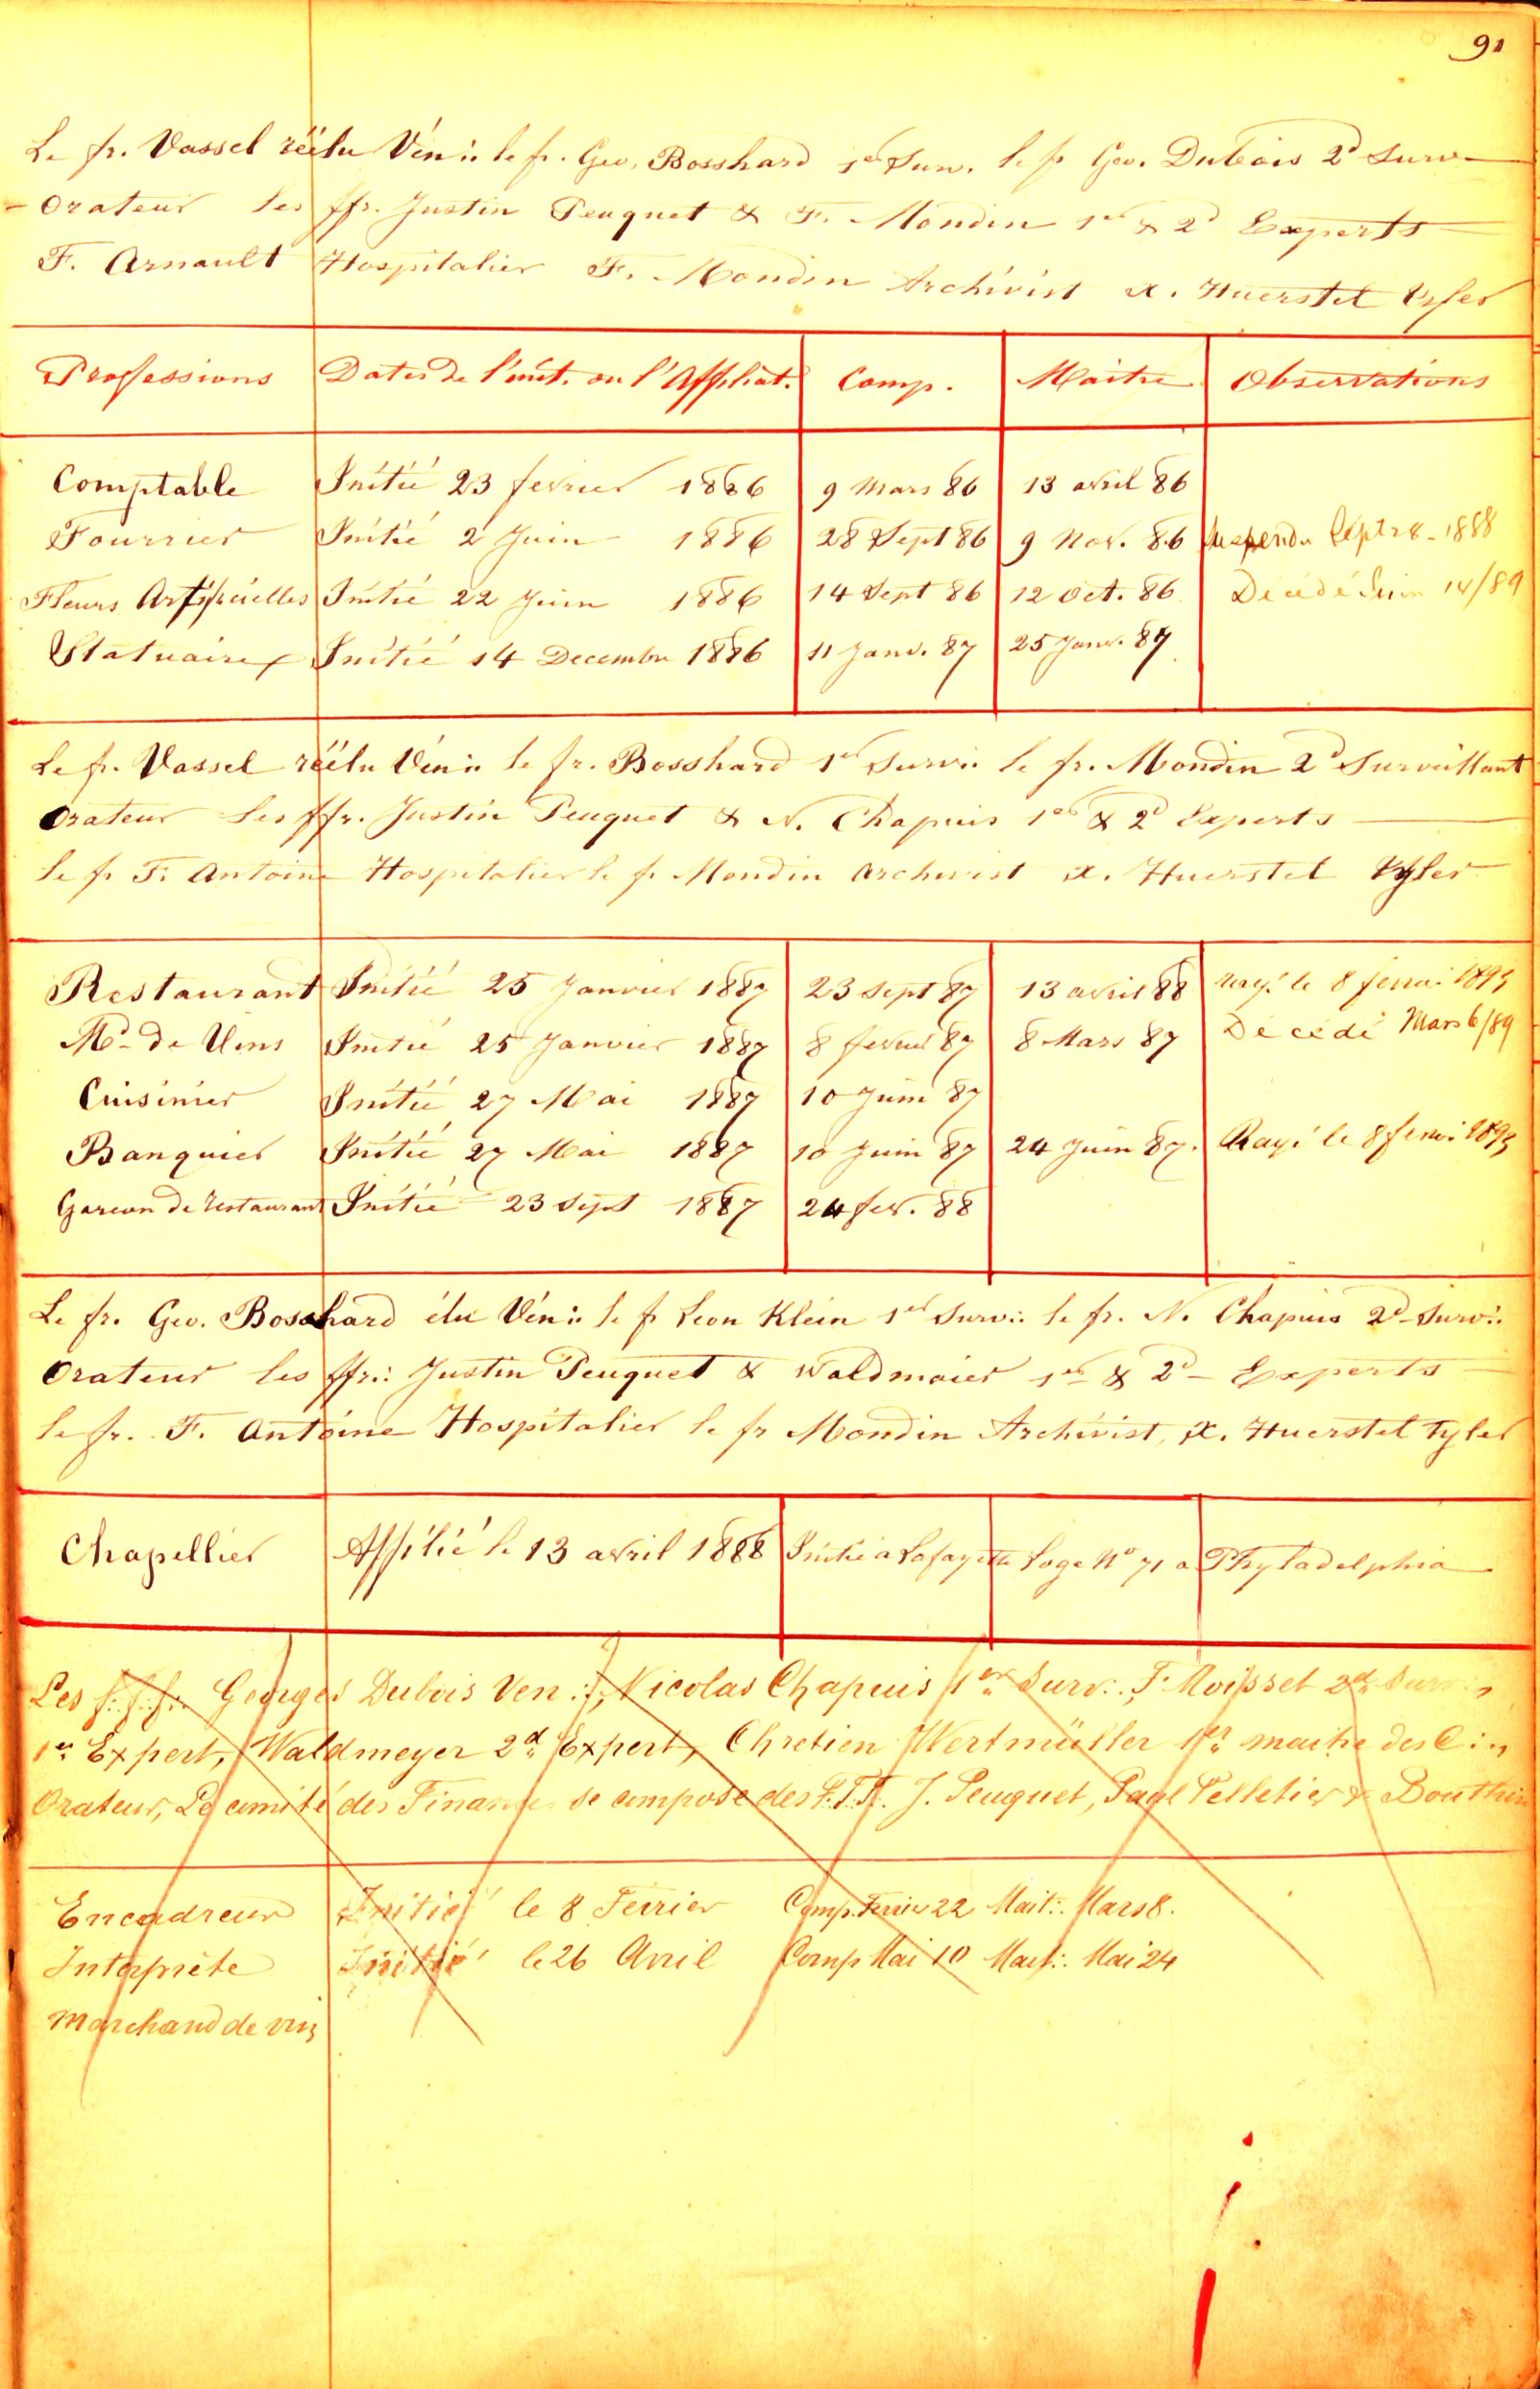 91
Le fr. Vassel réélu Vén∴ le fr. Geo. Bosshard 1er Surv. le fr Geo. Dubois 2d Surv
- Orateur les ffr. Justin Peuquet & F. Mondin 1er & 2d Experts
F. Arnault Hospitalier F. Mondin Archivist X. Huerstel Tyler
Professions Dates de l'init. ou l'Affiliat. Comp. Maitre Observations
Comptable Initié 23 fevrier 1886 9 Mars 86 13 avril 86
Fourrier Initié 2 Juin 1886 28 Sept 86 9 Nov. 86 Suspendu Sept 28 - 1888
Fleurs Artificielles Initié 22 Juin 1886 14 Sept 86 12 Oct. 86 Décédé Juin 14/89
Statuaire Initié 14 Decembre 1886 11 Janv. 87 25 Janv. 87
Le fr. Vassel réélu Vén∴ le fr. Bosshard 1er Surv∴ le fr. Mondin 2d Surveillant
Orateur Les ffr. Justin Peuquet & N. Chapuis 1er & 2d Experts
le fr F. Antoine Hospitalier le fr Mondin Archivist X. Huerstel Tyler
Restaurant Initié 25 Janvier 1887 23 Sept 87 13 avril 88 rayé le 8 fevrier 1893
Md de Vins Initié 25 Janvier 1887 8 fevrier 87 8 Mars 87 Décédé Mars 6/89
Cuisinier Initié 27 Mai 1887 10 Juin 87
Banquier Initié 27 Mai 1887 10 Juin 87 24 Juin 87. Rayé le 8 fevrier 1893
Garcon de restaurant Initié 23 Sept 1887 24 fev. 88
Le fr. Geo. Bosshard élu Vén∴ le fr Leon Klein 1er Surv∴ le fr. N. Chapuis 2d Surv∴
Orateur les ffr∴ Justin Peuquet & Waldmaier 1er & 2d - Experts
le fr. F. Antoine Hospitalier le fr Mondin Archivist, X. Huerstel Tyler
Chapellier Affilié le 13 avril 1888 Initié a Lafayette Loge No 71 a Phyladelphia
Les f∴f∴f∴ Georges Dubois Ven∴, Nicolas Chapuis 1er Surv∴, F. Moisset 2d Surv∴,
1er Expert, Waldmeyer 2d Expert, Chretien Wertmüller 1er maitre des C∴,
Orateur, Le comité des Finances se compose des F.F.F. J. Peuquet, Paul Pelletier &
Encadreur Initié le 8 Fevrier Comp. Fevrier 22 Mait∴ Mars 8.
Interprète Initié le 26 Avril Comp Mai 10 Mait∴ Mai 24
Marchand de vin